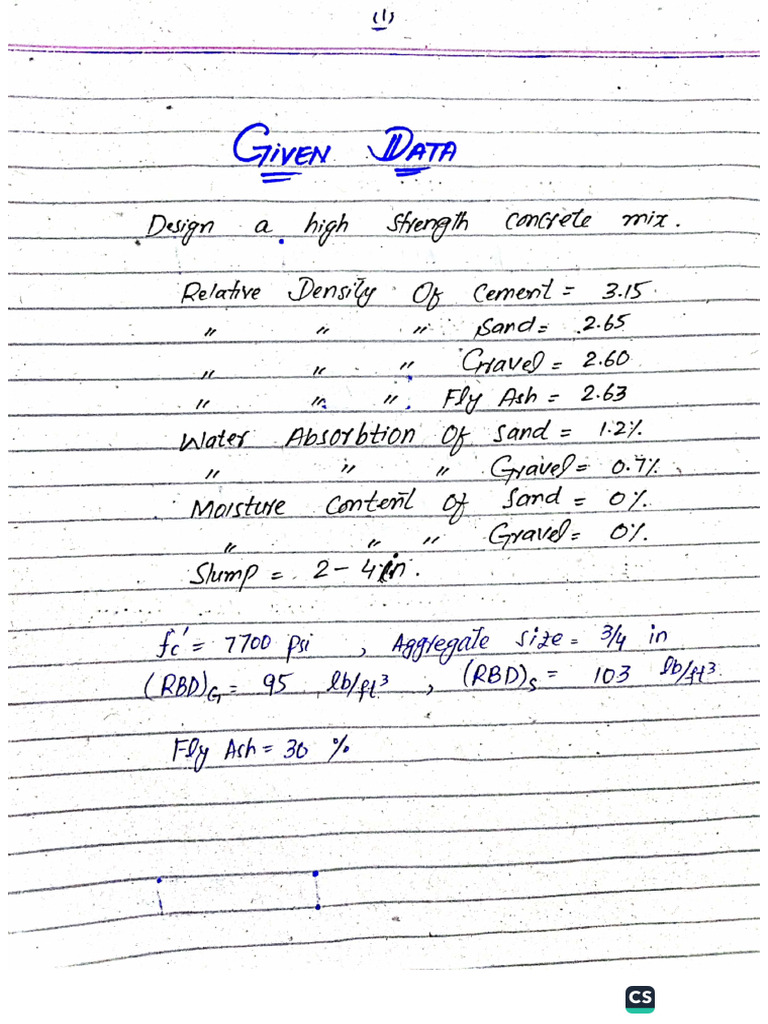 (1)
GIVEN DATA
Design a high strength concrete mix.
Relative Density Of Cement = 3.15
" " " Sand = 2.65
" " " Gravel = 2.60
" " " Fly Ash = 2.63
Water Absorbtion Of Sand = 1.2%
" " " Gravel = 0.7%
Moisture Content Of Sand = 0%
" " " Gravel = 0%.
Slump = 2 - 4 in.
fc' = 7700 psi , Aggregate size = 3/4 in
(RBD)G = 95 lb/ft³ , (RBD)s = 103 lb/ft³
Fly Ash = 30 %
CS